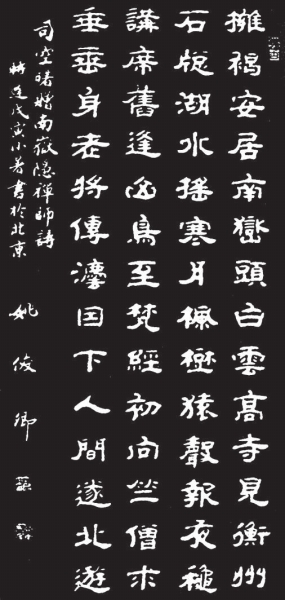 擁褐安居南嶽頭白雲高寺見衡州
石牎湖水搖寒月楓樹猿聲報夜穐
講席舊逢山鳥至梵經初向竺僧求
垂垂身老將傳灋因下人間遂北遊
司空曙贈南嶽隱禪師詩
時逢戊寅小暑書於北京
姚俊卿